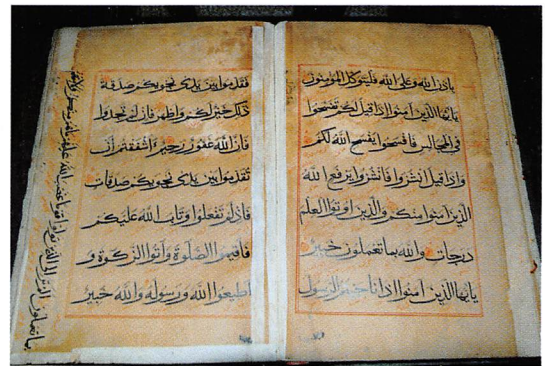 باذن الله وعلى الله فليتوكل المؤمنون
يايها الذين امنوا اذا قيل لكم تفسحوا
في المجالس فافسحوا يفسح الله لكم
واذا قيل انشزوا فانشزوا يرفع الله
الذين امنوا منكم والذين اوتوا العلم
درجات والله بما تعملون خبير
يايها الذين امنوا اذا ناجيتم الرسول
فقدموا بين يدى نجويكم صدقة
ذلك خير لكم واطهر فان لم تجدوا
فان الله غفور رحيم ءاشفقتم ان
تقدموا بين يدى نجويكم صدقات
فاذ لم تفعلوا وتاب الله عليكم
فاقيموا الصلوة واتوا الزكوة و
اطيعوا الله ورسوله والله خبير
بما تعملون الم تر الى الذين تولوا قوما غضب الله عليهم ما هم منكم